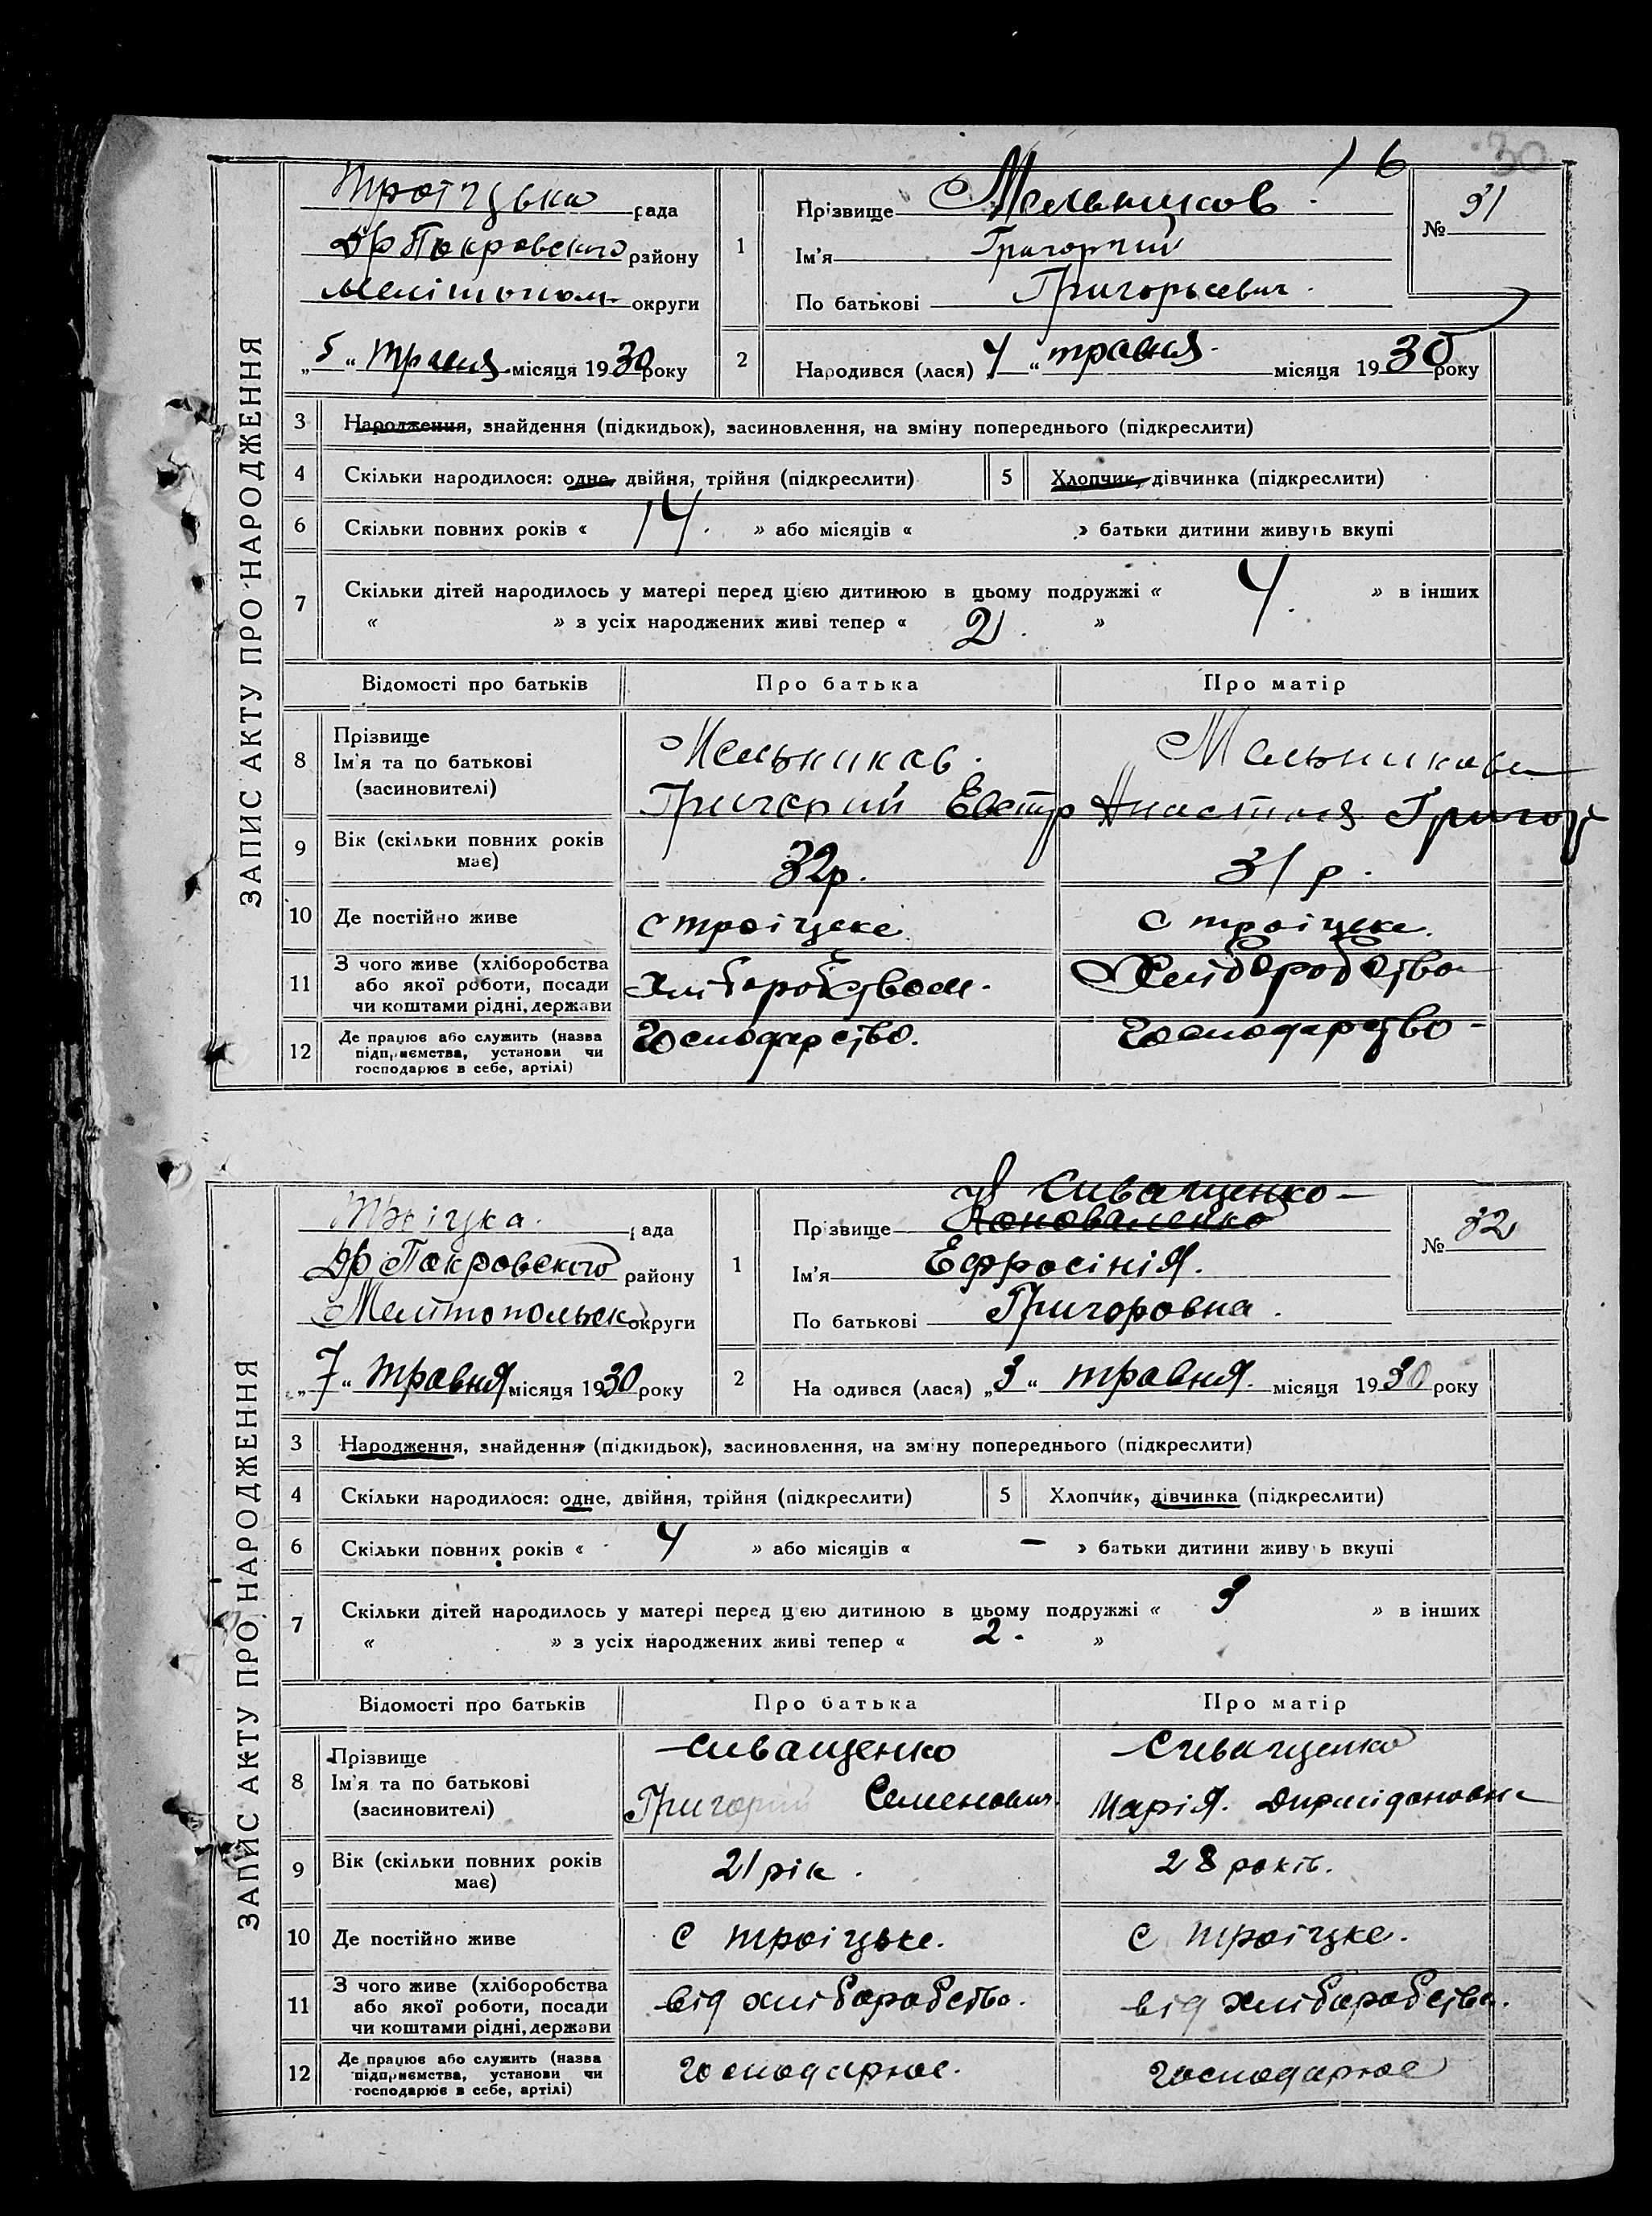 16
30
ЗАПИС АКТУ ПРО НАРОДЖЕННЯ
Троіцька рада
Др Покровского району
Мелітопол. округи
„5“ травня місяця 1930 року
1
Прізвище Мельников.
Ім'я Григорий
По батькові Григорьевич.
№ 31
2
Народився (лася) „4“ травня місяця 1930 року
3 Народження, знайдення (підкидьок), засиновлення, на зміну попереднього (підкреслити)
4 Скільки народилося: одне, двійня, трійня (підкреслити) 5 Хлопчик, дівчинка (підкреслити)
6 Скільки повних років « 14. » або місяців « » батьки дитини живуть вкупі
7 Скільки дітей народилось у матері перед цією дитиною в цьому подружжі « 4. » в інших
« » з усіх народжених живі тепер « 2. »
Відомості про батьків Про батька Про матір
8 Прізвище
Ім'я та по батькові
(засиновителі)
Мельников. Мельникова
Григорий Евстр Анастасія Григор
9 Вік (скільки повних років
має)
32р. 31 р.
10 Де постійно живе с троіцске. с троіцке.
11 З чого живе (хліборобства
або якої роботи, посади
чи коштами рідні, держави
Хліборобством. Хліборобства
12 Де працює або служить (назва
підприємства, установи чи
господарює в себе, артілі)
Господарство. Господарство
ЗАПИС АКТУ ПРО НАРОДЖЕННЯ
Троіцка рада
Др Покровского району
Мелітопольск округи
„7“ травня місяця 1930 року
1
Сиващенко
Прізвище Коноваленко
Ім'я Ефросінія.
По батькові Григоровна.
№ 32
2
Народився (лася) „3“ травня. місяця 1930 року
3 Народження, знайдення (підкидьок), засиновлення, на зміну попереднього (підкреслити)
4 Скільки народилося: одне, двійня, трійня (підкреслити) 5 Хлопчик, дівчинка (підкреслити)
6 Скільки повних років « 4 » або місяців « — » батьки дитини живуть вкупі
7 Скільки дітей народилось у матері перед цією дитиною в цьому подружжі « 3 » в інших
« » з усіх народжених живі тепер « 2. »
Відомості про батьків Про батька Про матір
8 Прізвище
Ім'я та по батькові
(засиновителі)
Сиващенко Сиващенко
Григорий Семенович. Марія.
9 Вік (скільки повних років
має)
21 рік. 28 років.
10 Де постійно живе с троіцьке. с троіцке.
11 З чого живе (хліборобства
або якої роботи, посади
чи коштами рідні, держави
від хліборобства. від хліборобства.
12 Де працює або служить (назва
підприємства, установи чи
господарює в себе, артілі)
господарює. господарює